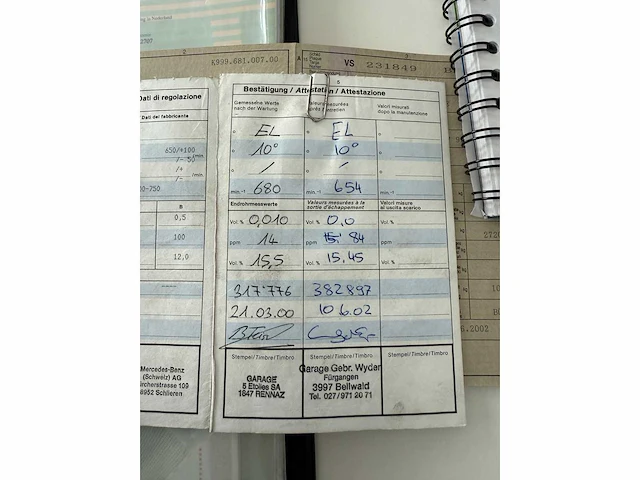 K999.681.007.00
VS 231849
Bestätigung / Attestation / Attestazione
Dati di regolazione
Gemessene Werte nach der Wartung
Valeurs mesurées après l'entretien
Valori misurati dopo la manutenzione
Dati del fabbricante
° EL ° EL °
650/+100 /min ° 10° ° 10° °
/- 50 /min
/+ ° / ° / °
/- /min
00-750 min.-¹ 680 min.-¹ 654 min.-¹
Endrohrmesswerte
Valeurs mesurées à la sortie d'échappement
Valori misure al uscita scarico
B
0,5 Vol. % 0,010 Vol. % 0,0 Vol. %
100 ppm 14 ppm 84 ppm
12,0 Vol. % 15,5 Vol. % 15,45 Vol. %
317'776 382897
21.03.00 10 6.02
Stempel/Timbre/Timbro Stempel/Timbre/Timbro Stempel/Timbre/Timbro
Mercedes-Benz
(Schweiz) AG
8952 Schlieren
GARAGE
5 Etoiles SA
1847 RENNAZ
Garage Gebr. Wyder
Fürgangen
3997 Bellwald
Tel. 027/971 20 71
6.2002